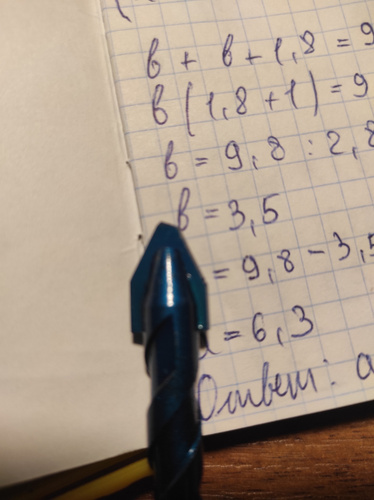 в + в + 1,8 = 9
в (1,8 + 1) = 9
в = 9,8 : 2,8
в = 3,5
= 9,8 - 3,5
= 6,3
Ответ: а